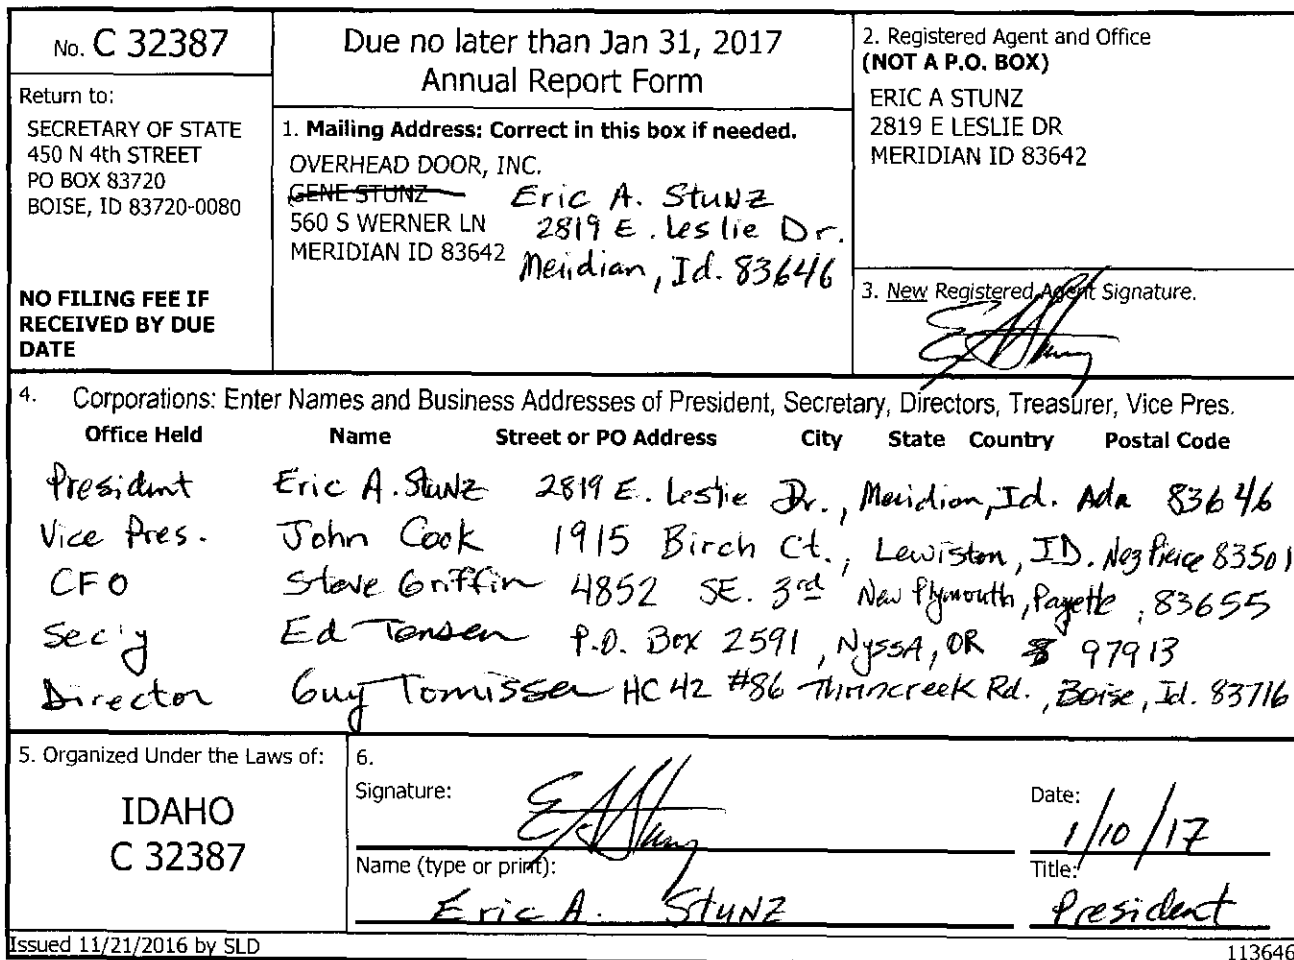 No. C 32387
Due no later than Jan 31, 2017
Annual Report Form
Return to:
SECRETARY OF STATE
450 N 4th STREET
PO BOX 83720
BOISE, ID 83720-0080
NO FILING FEE IF
RECEIVED BY DUE
DATE
1. Mailing Address: Correct in this box if needed.
OVERHEAD DOOR, INC.
GENE STUNZ
560 S WERNER LN
MERIDIAN ID 83642
Eric A. Stunz
2819 E. Leslie Dr.
Meridian, Id. 83646
2. Registered Agent and Office
(NOT A P.O. BOX)
ERIC A STUNZ
2819 E LESLIE DR
MERIDIAN ID 83642
3. New Registered Agent Signature.
4. Corporations: Enter Names and Business Addresses of President, Secretary, Directors, Treasurer, Vice Pres.
Office Held Name Street or PO Address City State Country Postal Code
President Eric A. Stunz 2819 E. Leslie Dr., Meridian, Id. Ada 83646
Vice Pres. John Cook 1915 Birch Ct., Lewiston, ID. Nez Pierce 83501
CFO Steve Griffin 4852 SE. 3rd New Plymouth, Payette, 83655
Sec'y Ed Tensen P.O. Box 2591, Nyssa, OR 97913
Director Guy Tomissen HC 42 #86 Rd., Boise, Id. 83716
5. Organized Under the Laws of:
IDAHO
C 32387
6.
Signature:
Date:
1/10/17
Name (type or print):
Eric A. Stunz
Title:
President
Issued 11/21/2016 by SLD
113646